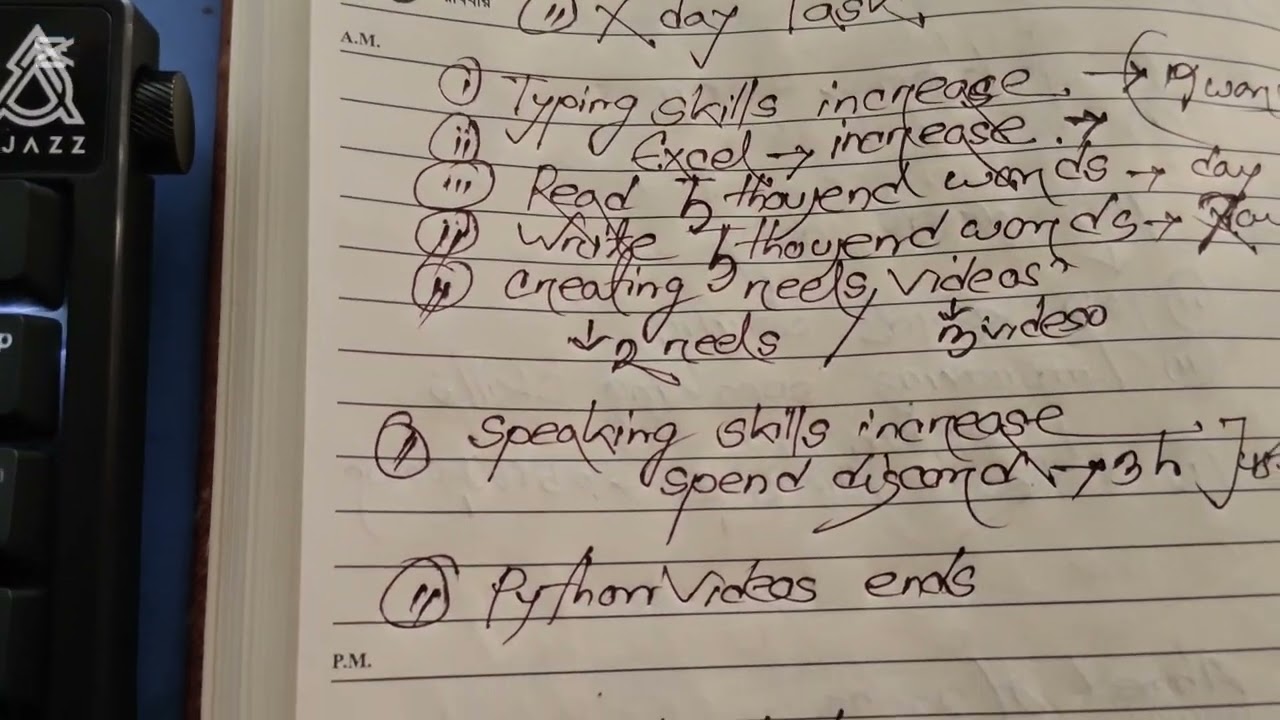 (ii) X day Task
A.M.
(i) Typing skills increase. →
(ii) Excel → increase. →
(iii) Read 5 thousend words → day
(ii) Write 5 thousend words →
(ii) Creating reels, Videos
↓ 2 reels / ↓ 3 videso
Speaking skills increase
spend discord → 3 h
(ii) Python Videos ends
P.M.
JAZZ
P